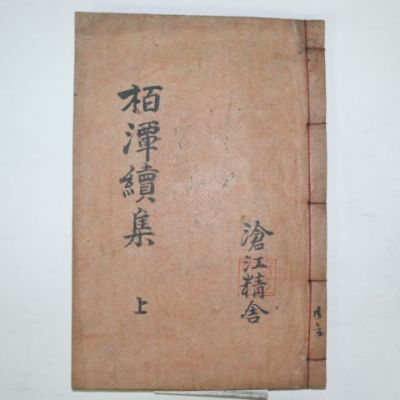 栢潭續集
上
滄江精舍